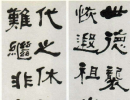 世德襲
恢遐祖
代之休
難繼非